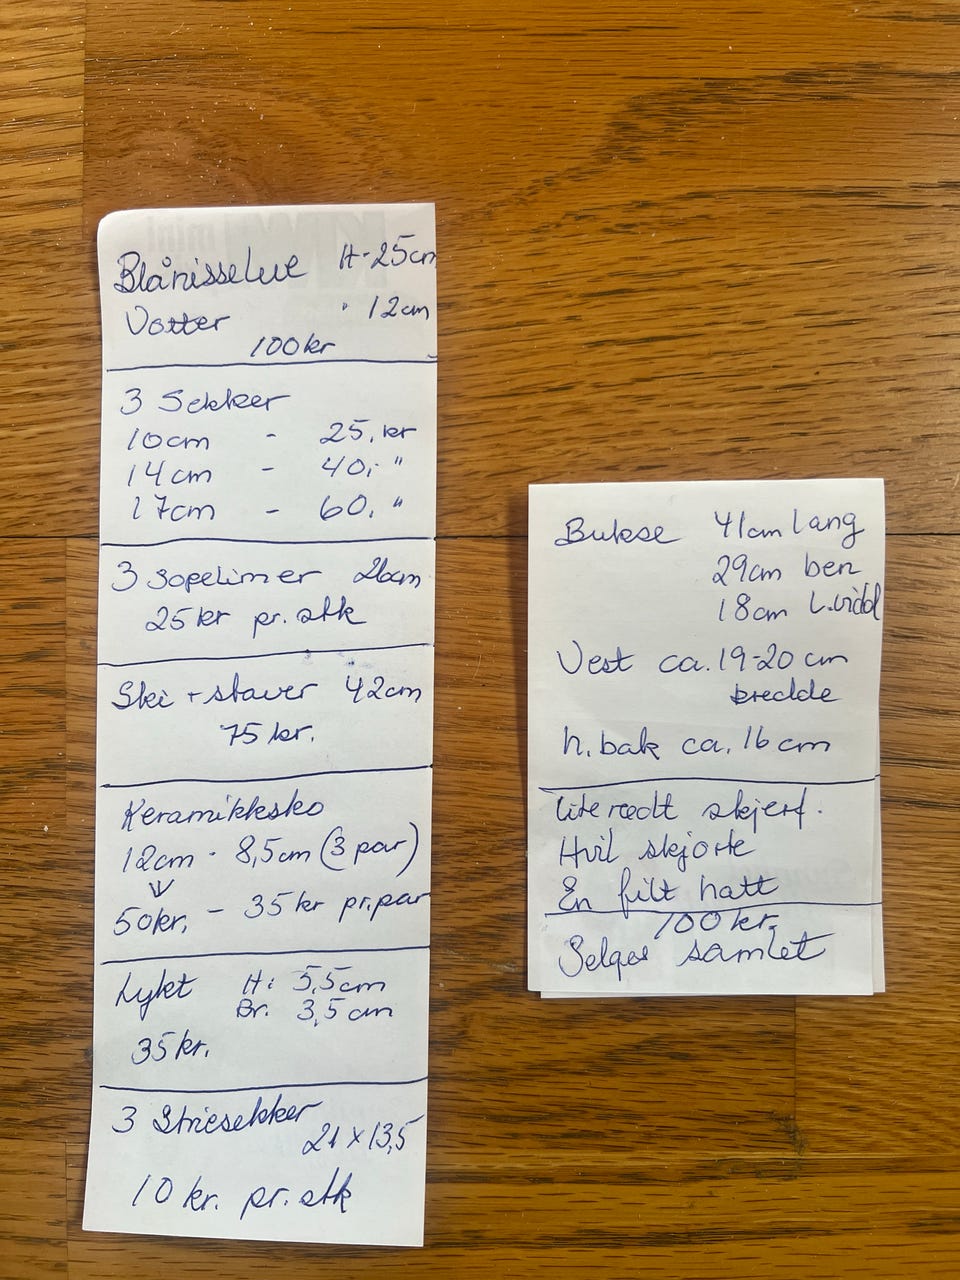 Blånisselue H-25cm
Votter " 12cm
100kr
3 Sekker
10cm - 25,kr
14cm - 40,- "
17cm - 60, "
3 sopelimer 26cm
25kr pr. stk
Ski + staver 42cm
75 kr.
Keramikksko
12cm - 8,5cm (3 par)
50kr. - 35kr pr.par
Lykt H: 5,5cm
Br. 3,5cm
35kr.
3 Striesekker
21 x 13,5
10 kr. pr. stk
Bukse 41cm lang
29cm ben
18cm L.vidd
Vest ca. 19-20 cm
bredde
h. bak ca. 16 cm
Lite rødt skjerf.
Hvit skjorte
En filt hatt
100kr.
Selges samlet